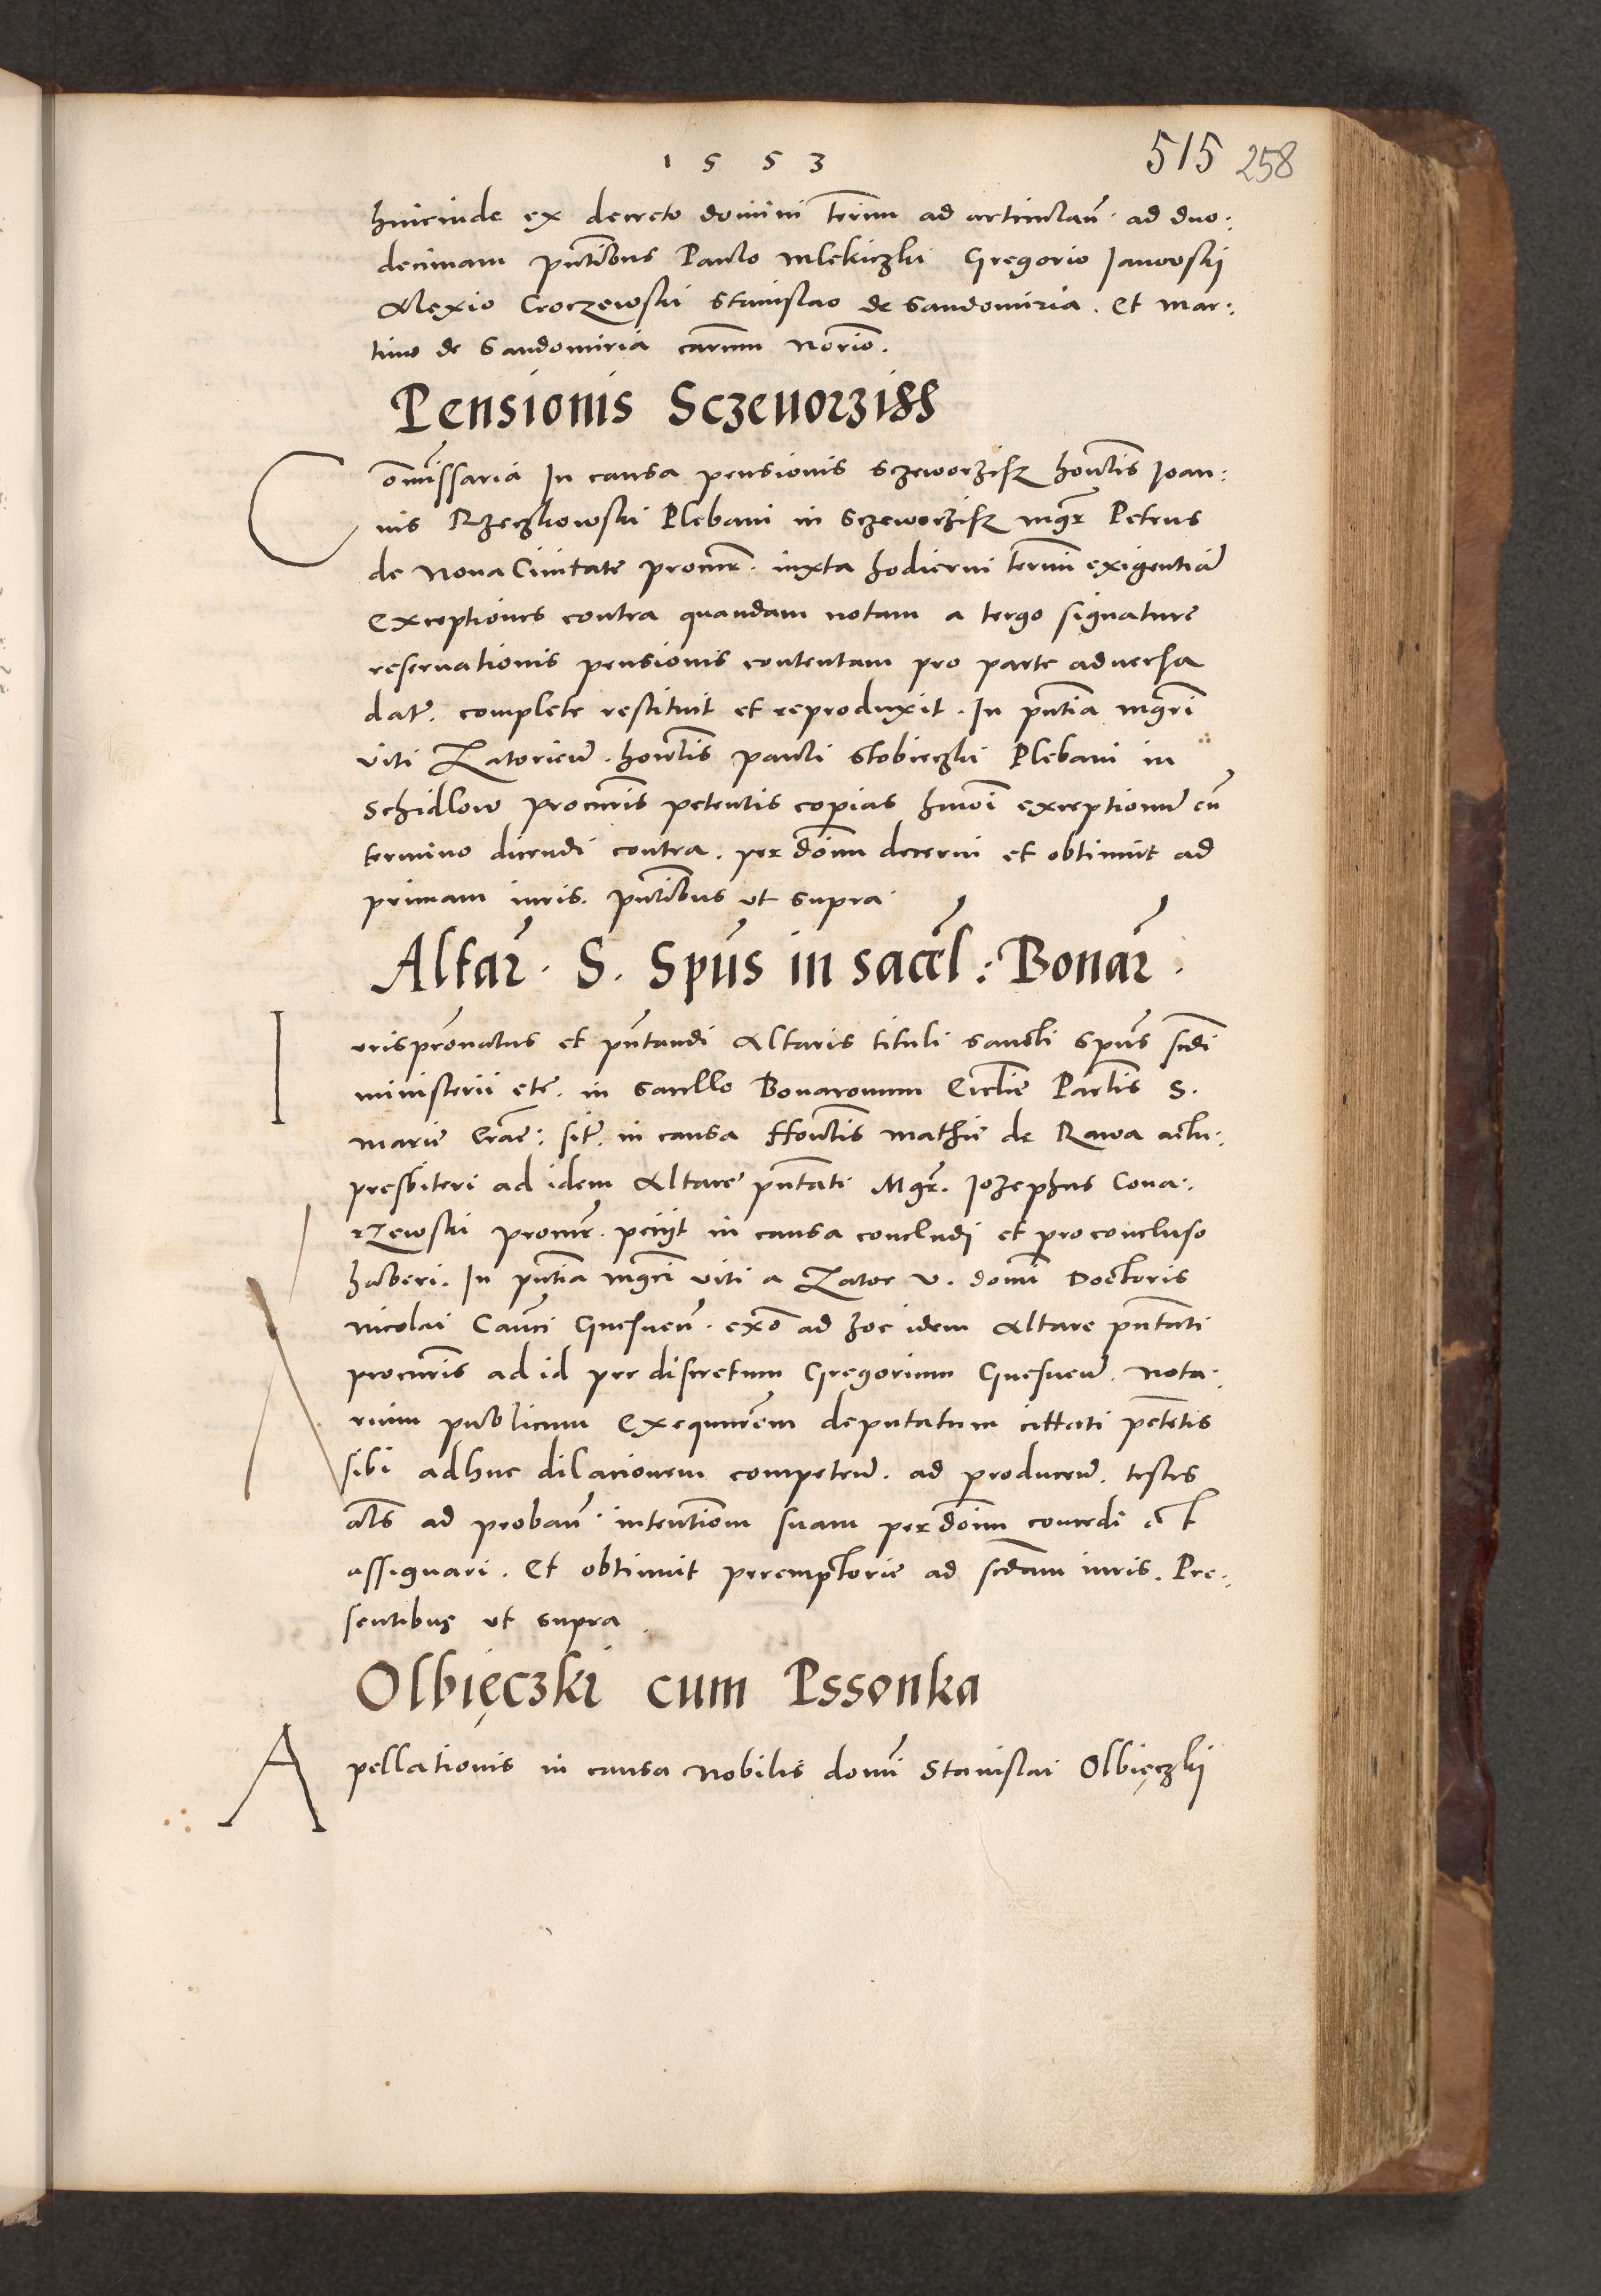 1 5 5 3
515 258
hincinde ex decreto domini terminū ad articulan̄. ad duo:
decimam pn̄tibus Paulo Mlekiczki Gregorio Janowskj
Alexio Croczewski Stanislao de Sandomiria. Et Mar:
tino de Sandomiria carum Norio.
Pensionis Sczeuorziss
Com̄issaria In causa pensionis Sczeworzisz hon̄lis Joan:
nis Rzeczkowski Plebani in Sczeworzisz mgr̄ Petrus
de Noua Ciuitate procur̄. iuxta hodierni termi exigentiā
Exceptiones contra quandam notam a tergo signature
reseruationis pensionis contentam pro parte aduersa
datē. complete restituit et reproduxit. In pn̄tia mgr̄i
viti Zatorien̄. honl̄is pauli Slobieczki Plebani in
Schidlow procuris petentis copias hmōi exceptionū cū
termino dicendi contra. per dōnm decerni et obtinuit ad
primam iuris. pn̄tibus ut supra
Altar̄. S. Spūs in sacel̄: Bonar̄.
Iurispr̄onatus et pn̄tandi Altaris tituli sancti Spūs scdī
ministerii etc̄. in sacello Bonarorum Ecclīe Parlis S.
marie Crāc: sitē. in causa Hon̄lis mathie de Rawa actu:
presbiteri ad idem Altare pn̄tati Mgr̄. Jozephus Cona:
rzewski procur̄. pcijt in causa concludj et pro concluso
haberi. In pn̄tia mgr̄i viti a Zator V. domī Doctoris
Nicolai Can̄ci Gnesnen̄. exō ad hoc idem Altare pn̄tati
procuris ad id per discretum Gregorium Gnesnen̄. Nota:
rium publicum Exequutorem deputatum cittati petētis
sibi adhuc dilacionem competen̄. ad producen̄. testes
al̄s ad proban̄. intentiom suam per dōnm concedi et
assignari. Et obtinuit peremptorie ad scdam iuris. Pre:
sentibus ut supra.
Olbięczki cum Pssonka
Apellationis in causa Nobilis domī Stanislai Olbięczkj